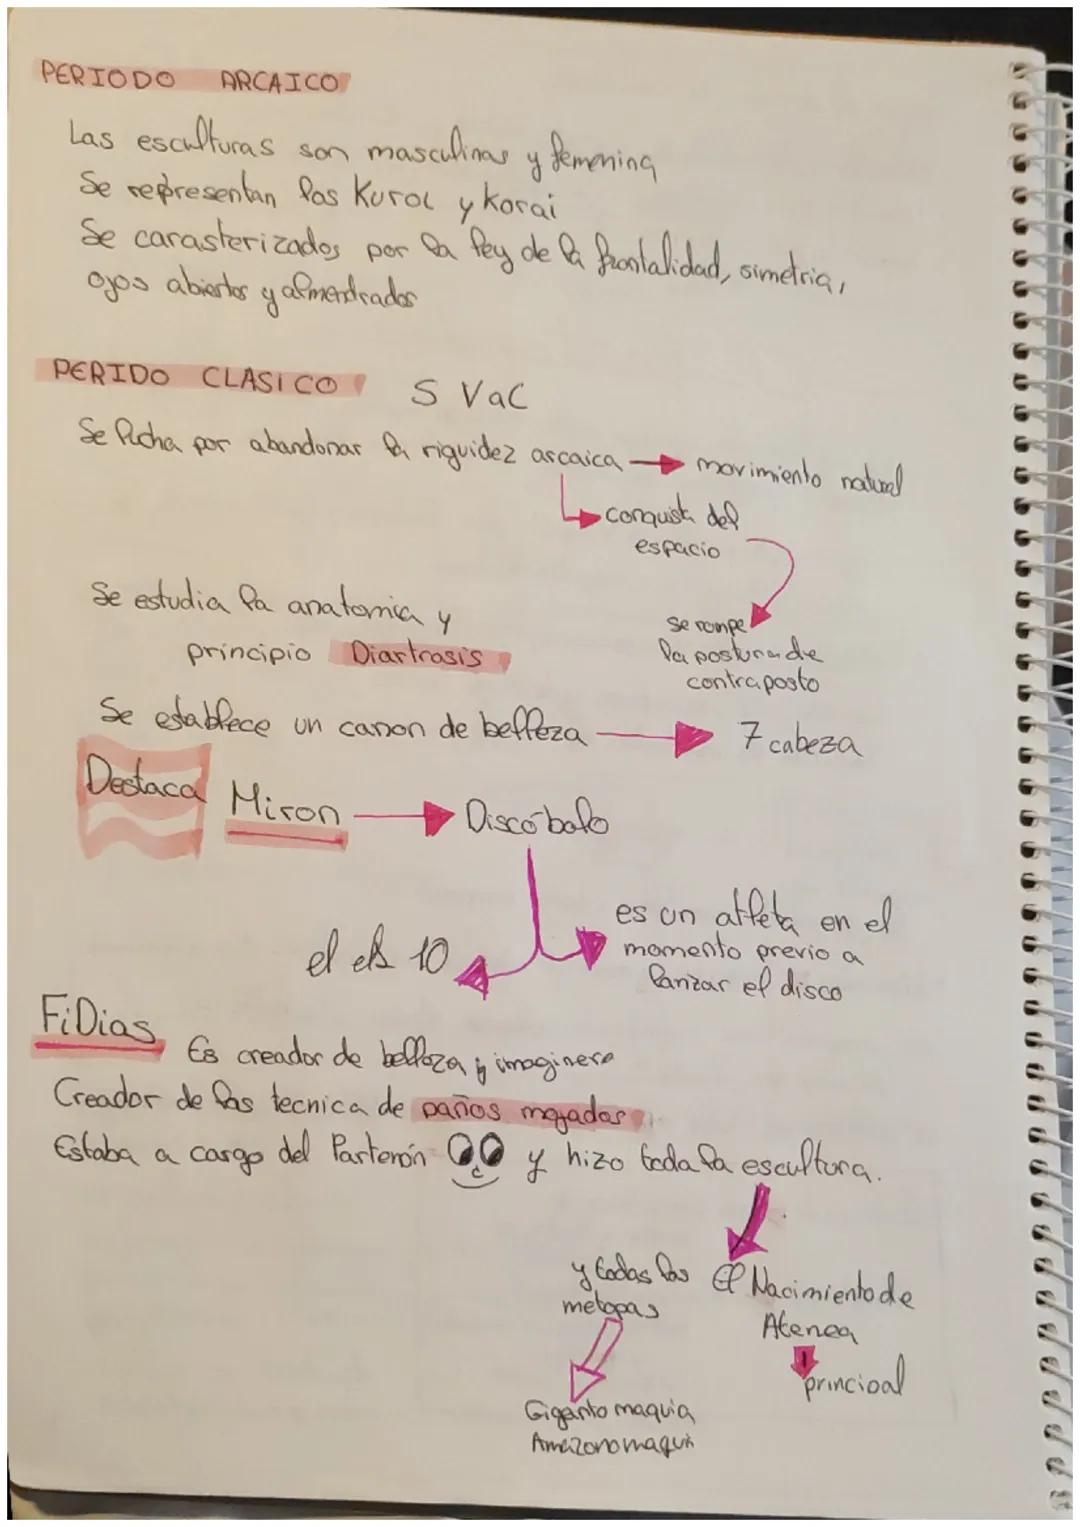 PERIODO ARCAICO
Las esculturas son masculinas y femenina
Se representan las Kuroi y Korai
Se carasterizados por la ley de la frontalidad, simetria,
ojos abiertos y almendrados
PERIDO CLASICO S VaC
Se lucha por abandonar la riguidez arcaica → movimiento natural
conquista del
espacio
se rompe
la postura de
contraposto
Se estudia la anatomia y
principio Diartrosis
Se establece un canon de belleza → 7 cabeza
Destaca Miron → Discóbolo
es un atleta en el
momento previo a
lanzar el disco
el 10
FiDias
Es creador de belleza y imaginero
Creador de las tecnica de paños mojados
Estaba a cargo del Partenón y hizo toda la escultura.
y todas las
metopas
Gigantomaquia
Amazonomaqui
El Nacimiento de
Atenea
princioal